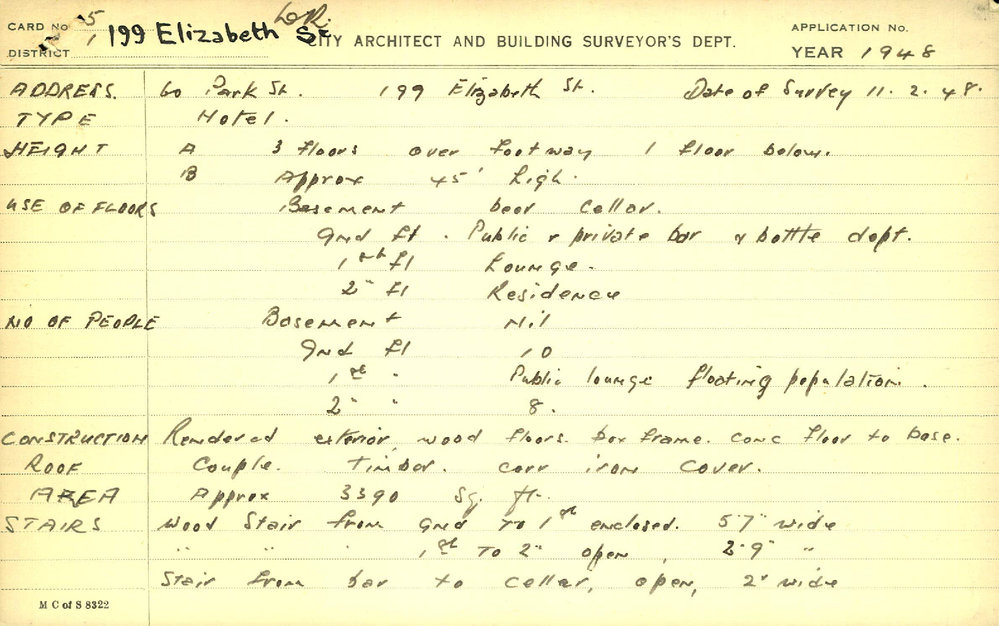 CARD No 5 Cor.
DISTRICT 1 199 Elizabeth St CITY ARCHITECT AND BUILDING SURVEYOR'S DEPT.
APPLICATION No.
YEAR 1948
ADDRESS. 60 Park St. 199 Elizabeth St. Date of Survey 11.2.48.
TYPE Hotel.
HEIGHT A 3 floors over footway 1 floor below.
B Approx 45' high.
USE OF FLOORS Basement beer cellar.
Gnd fl. Public & private bar & bottle dept.
1st fl Lounge.
2" fl Residence
NO OF PEOPLE Basement Nil
Gnd fl 10
1st " Public lounge floating population.
2" " 8.
CONSTRUCTION Rendered exterior, wood floors. box frame. conc floor to base.
ROOF Couple. Timber. corr iron cover.
AREA Approx 3390 Sq. ft.
STAIRS Wood Stair from Gnd To 1st enclosed. 5'7" wide
" " " 1st To 2" open, 2'9" "
Stair from bar to cellar, open, 2' wide
M C of S 8322